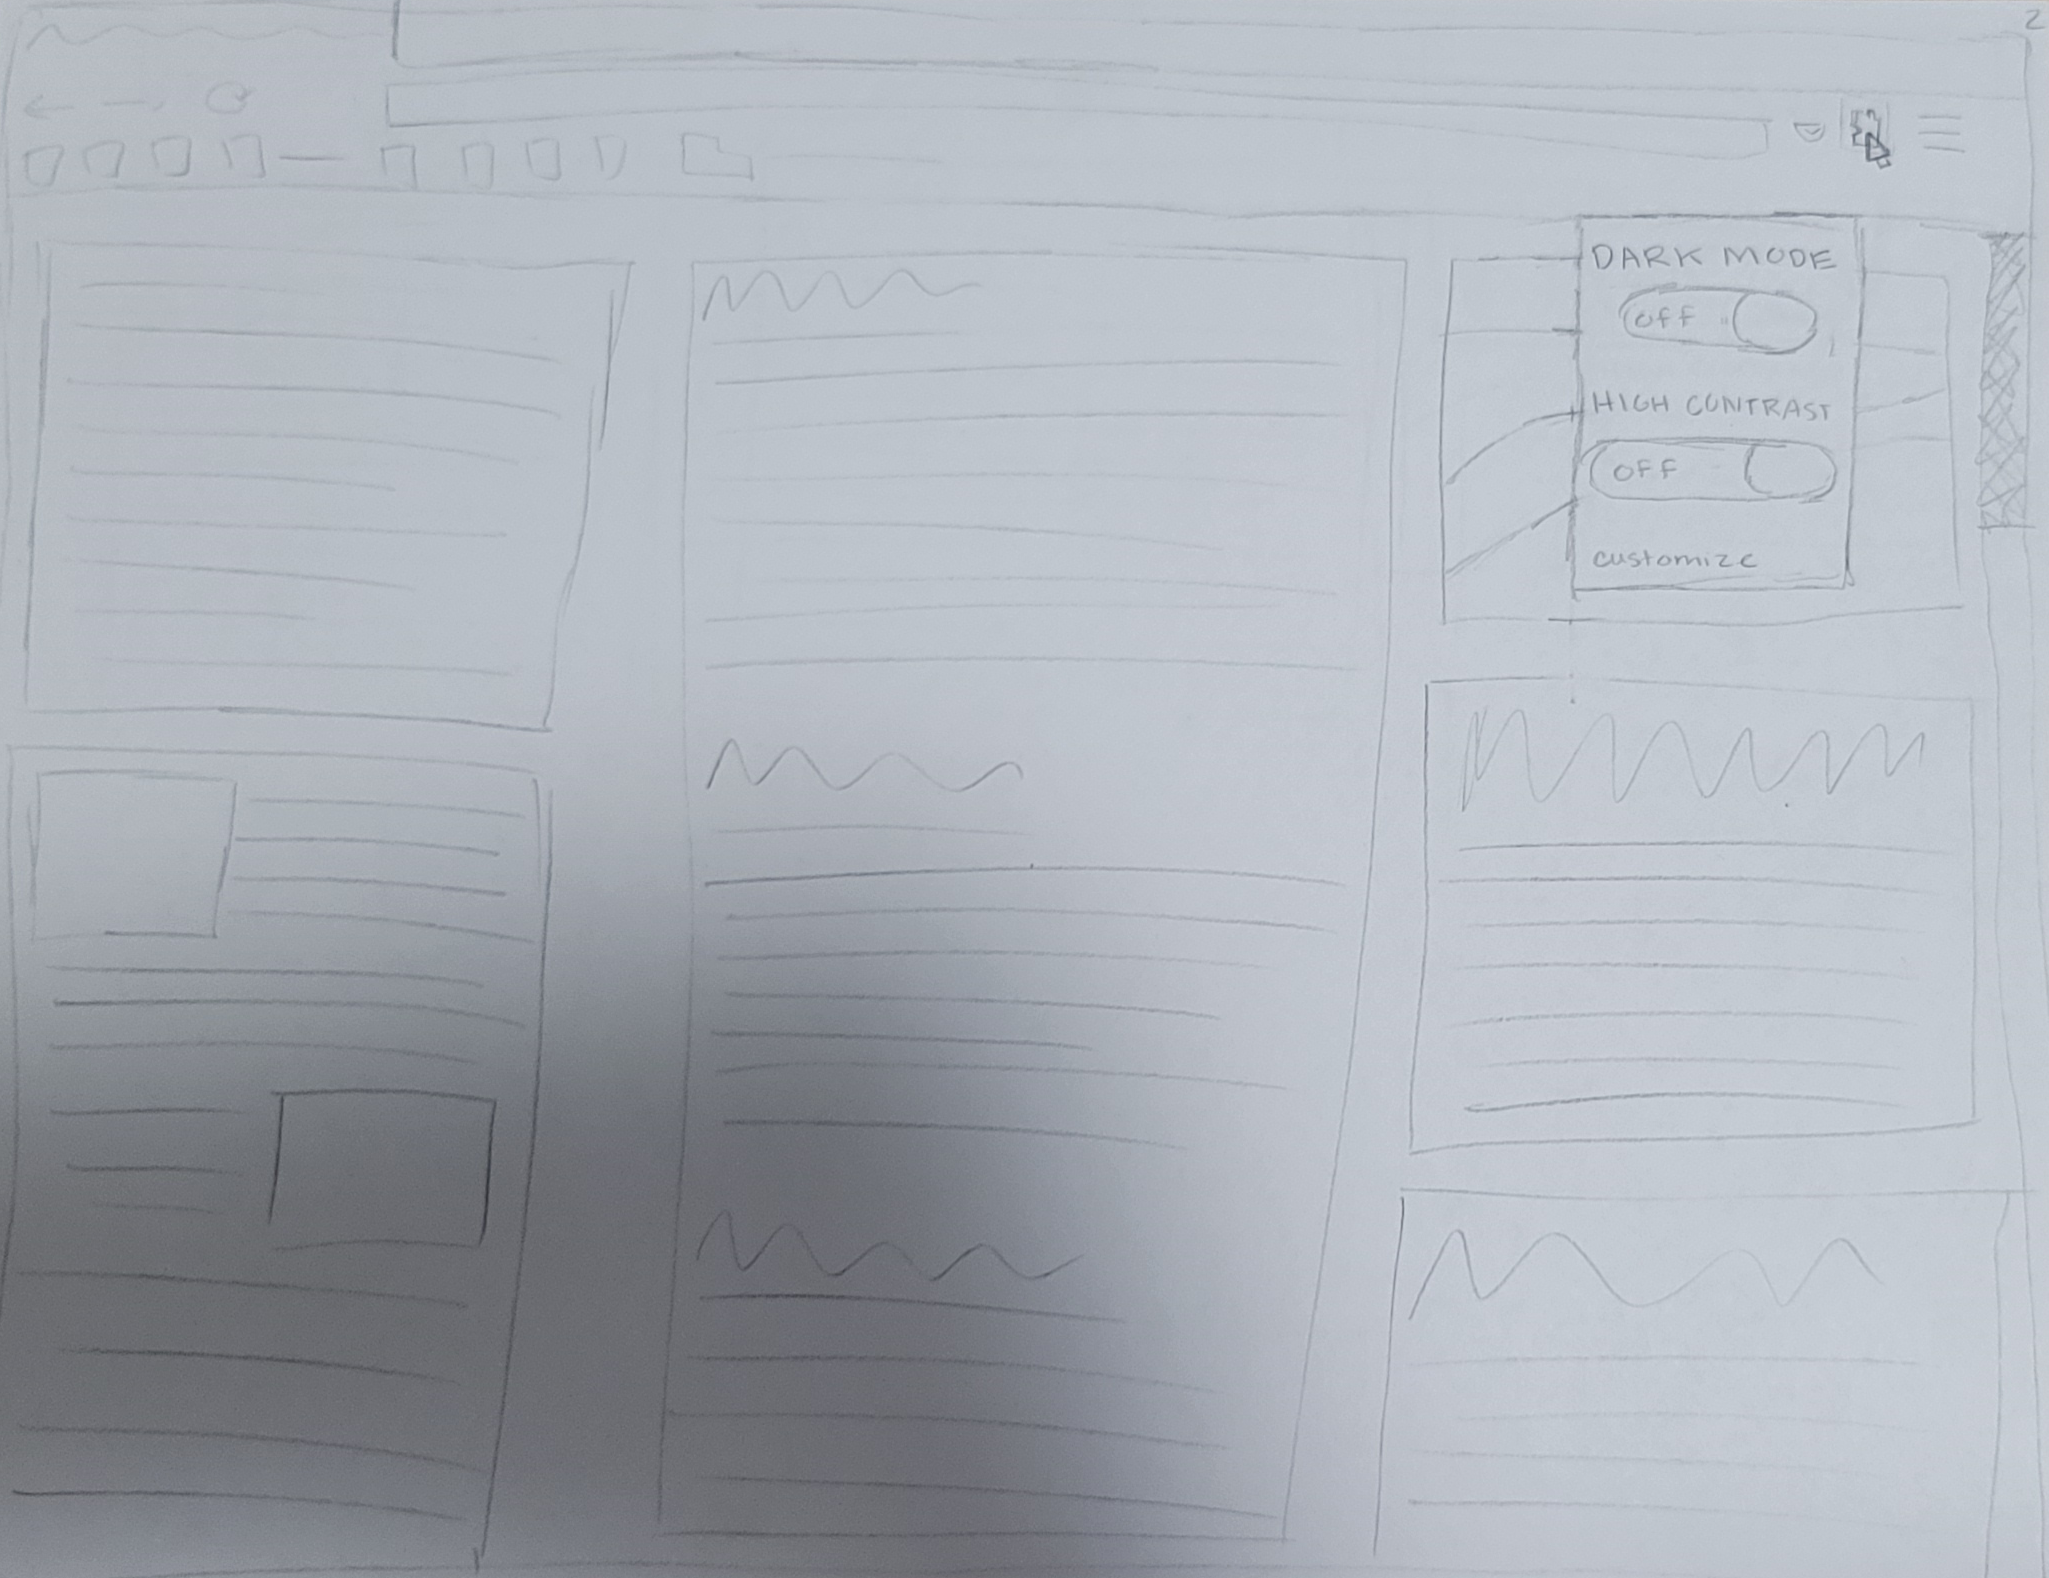 2
DARK MODE
OFF
HIGH CONTRAST
OFF
customize